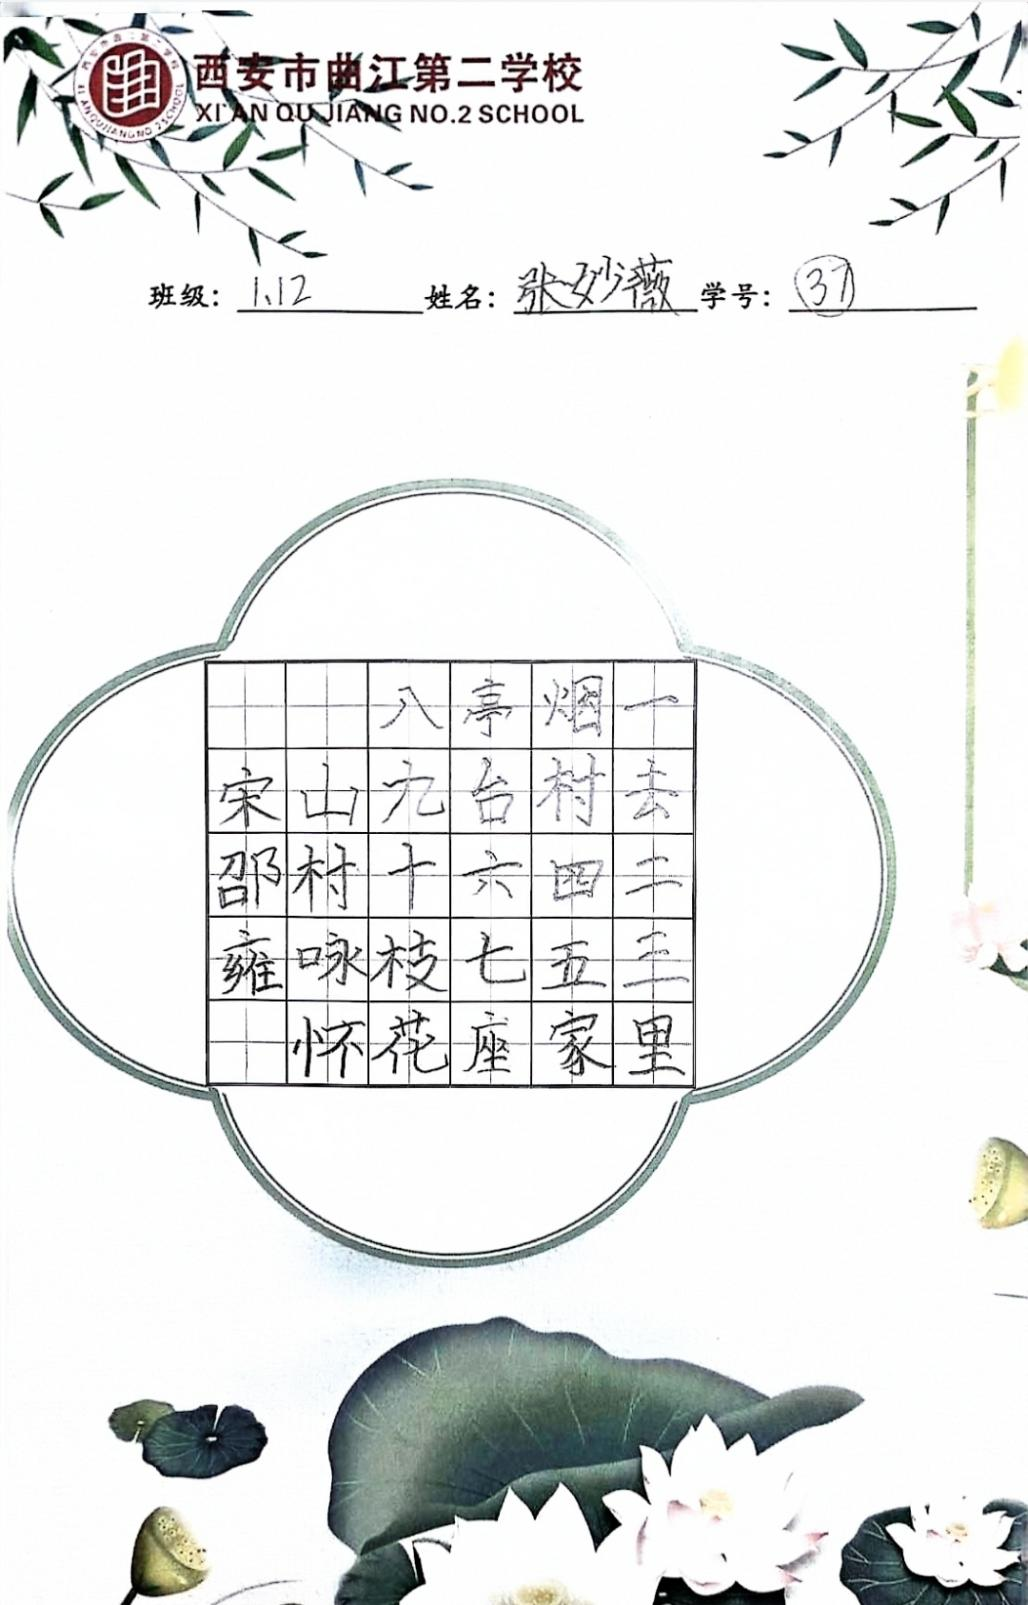 西安市曲江第二学校
XI'AN QU JIANG NO.2 SCHOOL
班级：1.12 姓名：张妙薇 学号：37
一去二三里
烟村四五家
亭台六七座
八九十枝花
山村咏怀
宋邵雍